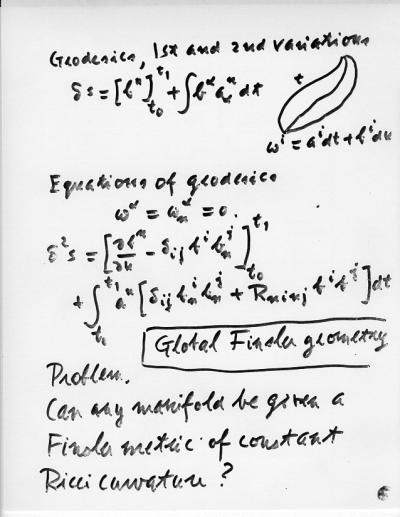 Geodesics, 1st and 2nd variations
δs = [b^n]_{t_0}^{t_1} + ∫ b^α a_α^n dt
t
ω^i = a^i dt + b^i du
Equations of geodesics
ω^α = ω_n^α = 0.
δ²s = [∂b^n/∂u - δ_{ij} b^i b_n^j]_{t_0}^{t_1}
+ ∫_{t_0}^{t_1} a^n [δ_{ij} b_n^i b_n^j + R_{ninj} b^i b^j] dt
Global Finsler geometry
Problem.
Can any manifold be given a
Finsler metric of constant
Ricci curvature?